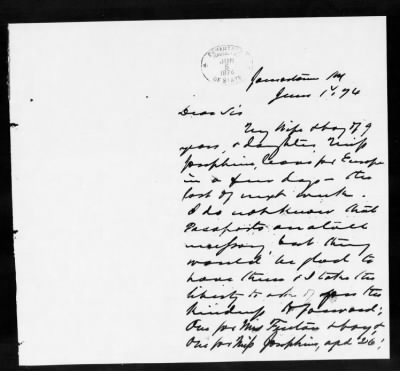 DEPARTMENT
JUN
5
1874
OF STATE
Jamestown
June 1st 74
Dear Sir
My Wife & boy of 9
years, & daughter, Miss
Josephine, leave for Europe
in a few days - the
last of next week.
I do not know that
Passports are at all
necessary but they
would be glad to
have them & I take the
liberty to ask of you the
kindness to forward;
One for Mrs & boy &
One for Miss Josephine, aged 26;